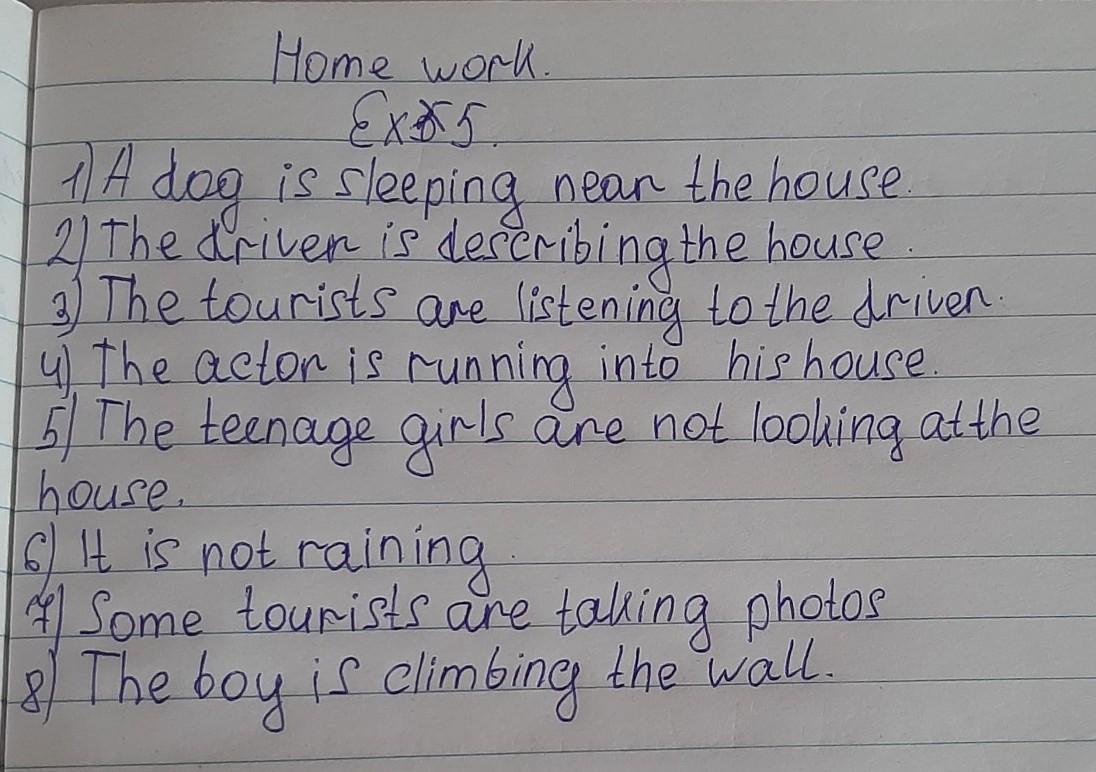 Home work.
Ex 5.
1) A dog is sleeping near the house.
2) The driver is describing the house.
3) The tourists are listening to the driver.
4) The actor is running into his house.
5) The teenage girls are not looking at the
house.
6) It is not raining.
7) Some tourists are taking photos
8) The boy is climbing the wall.